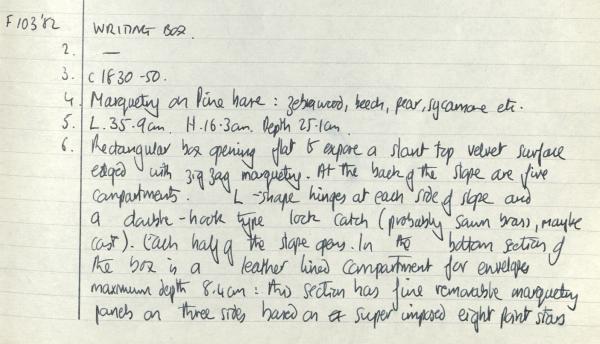 F103'82 WRITING BOX.
2. —
3. c 1830-50.
4. Marquetry on Pine base : zebrawood, beech, pear, sycamore etc.
5. L. 35.9cm. H.16.3cm. Depth 25.1cm.
6. Rectangular box opening flat to expose a slant top velvet surface
edged with zig zag marquetry. At the back of the slope are five
compartments. L-shape hinges at each side of slope and
a double-hook type lock catch (probably sawn brass, maybe
cast). Each half of the slope opens. In the bottom section of
the box is a leather lined compartment for envelopes
maximum depth 8.4cm : this section has fine removable marquetry
panels on three sides based on super imposed eight point stars